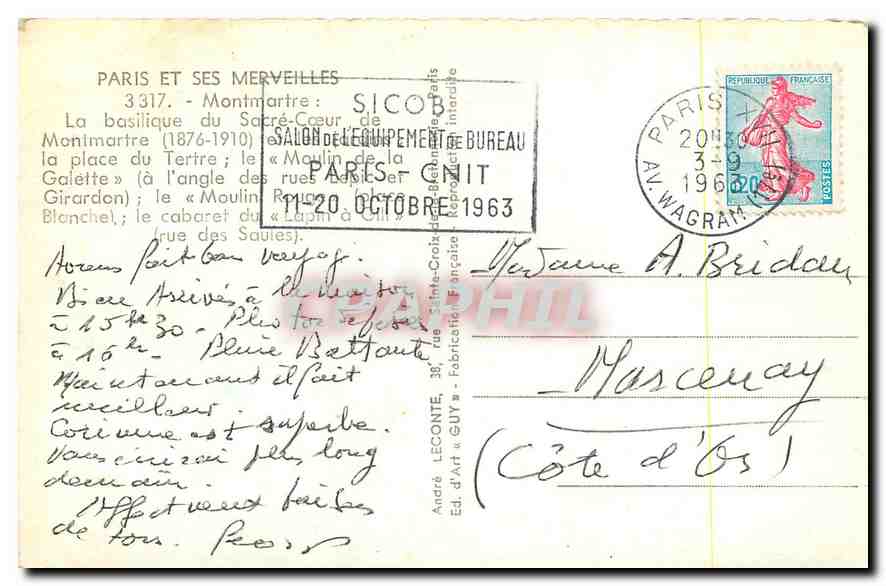 PARIS ET SES MERVEILLES
3 317. - Montmartre :
La basilique du Sacré-Cœur de
Montmartre (1876-1910) et
la place du Tertre ; le « Moulin de la
Galette » (à l'angle des rues Lepic et
Girardon) ; le « Moulin Rouge » (place
Blanche), ; le cabaret du « Lapin à Gill »
(rue des Saules).
SICOB
SALON DE L'EQUIPEMENT DE BUREAU
PARIS - CNIT
11-20 OCTOBRE 1963
REPUBLIQUE FRANÇAISE
0,20
POSTES
PARIS XVII
20H30
3-9
1963
AV. WAGRAM (17e)
Avons fait bon voyage.
Bien Arrivés à la maison
à 15h 30 - 
à 16h - Pluie Battante
Maintenant il fait
meilleur.
Corinne est superbe.
Vous écrirai plus long
demain.
Affectueux baisers
de tous.
André LECONTE, 38, rue Sainte-Croix-de-la-Bretonnerie, Paris
Ed. d'Art « GUY » - Fabrication Française - Reproduction interdite
Madame A. Bridan
Marcenay
(Côte d'Or)
CPAPHIL